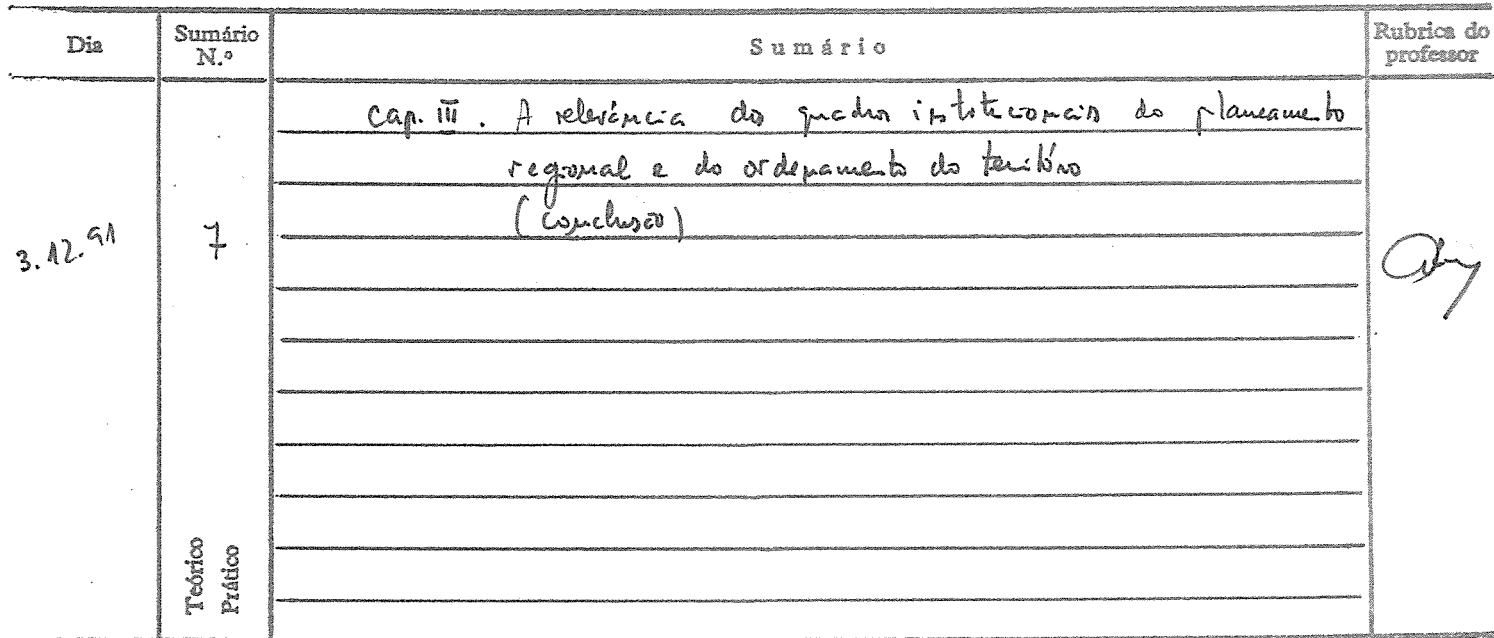 Dia
Sumário N.º
Sumário
Rubrica do professor
3.12.91
7
Cap. III. A relevância dos quadros institucionais do planeamento
regional e do ordenamento do território
(conclusão)
Teórico
Prático